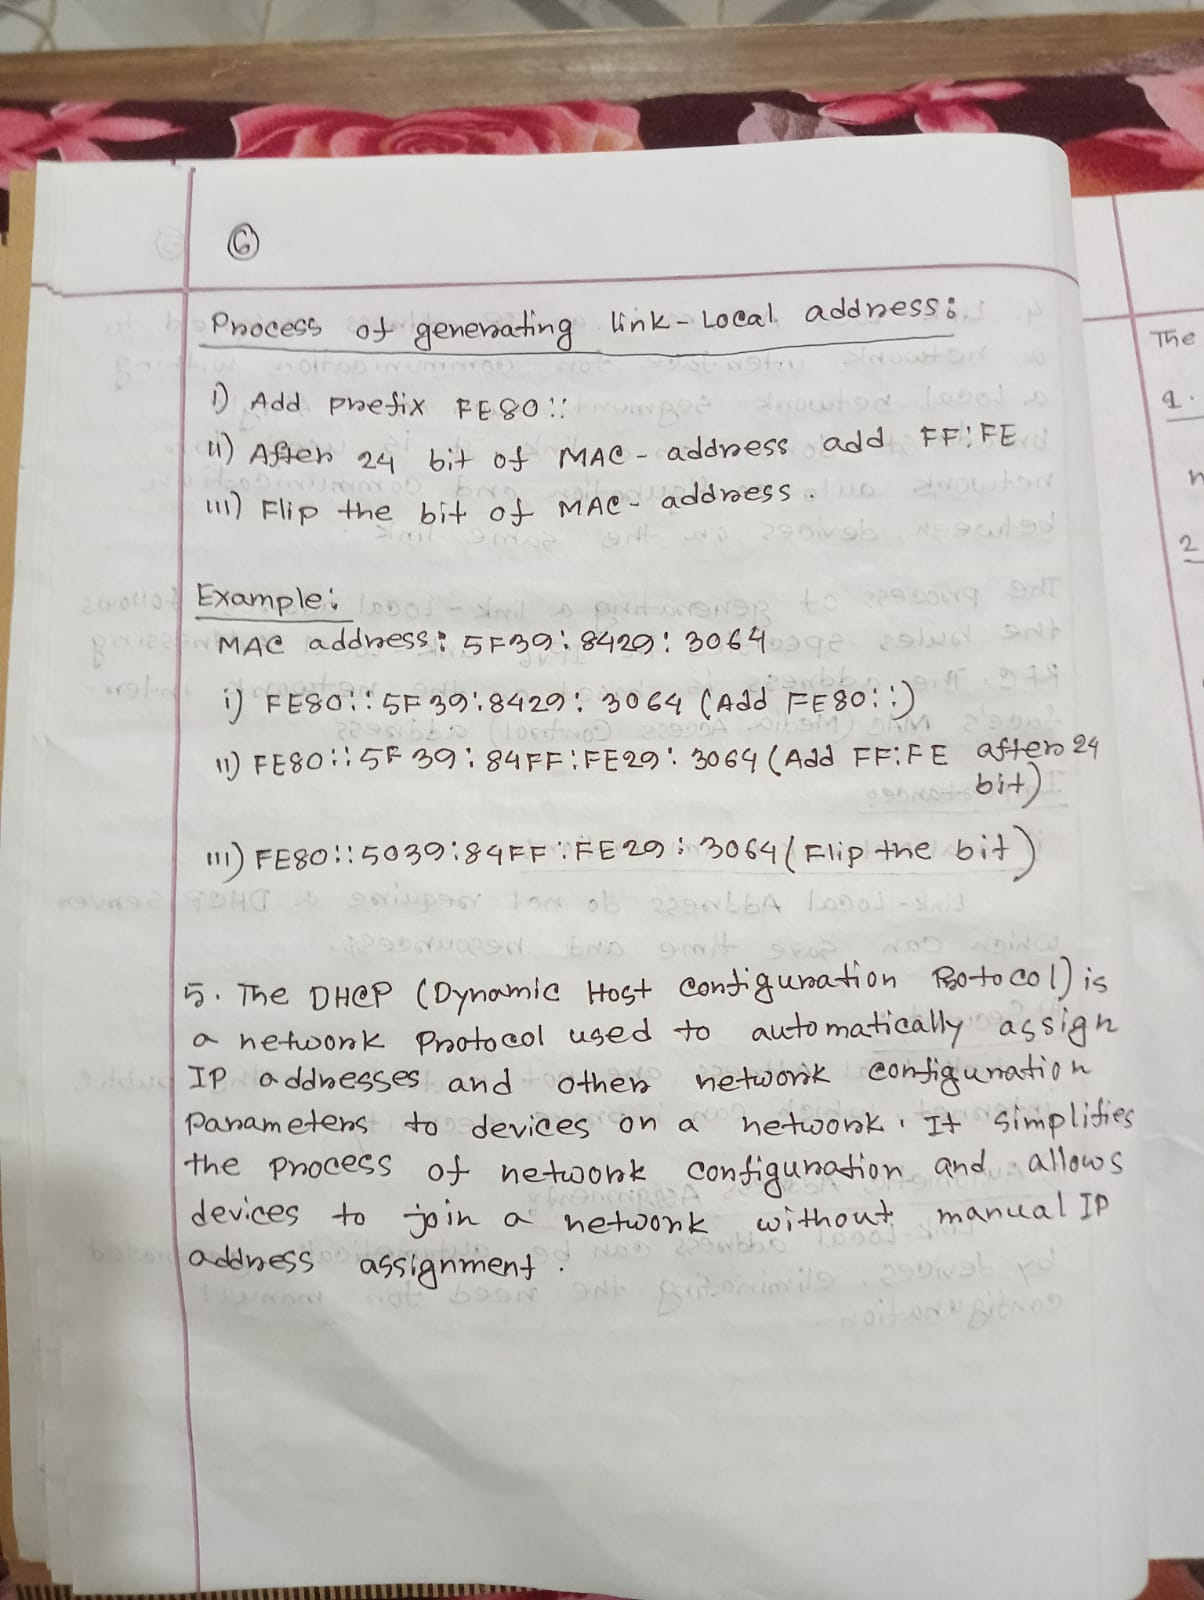 6
Process of generating link-Local address:
i) Add prefix FE80::
ii) After 24 bit of MAC-address add FF:FE
iii) Flip the bit of MAC-address.
Example:
MAC address: 5F39:8429:3064
i) FE80::5F39:8429:3064 (Add FE80::)
ii) FE80::5F39:84FF:FE29:3064 (Add FF:FE after 24
bit)
iii) FE80::5039:84FF:FE29:3064 (Flip the bit)
5. The DHCP (Dynamic Host Configuration Protocol) is
a network Protocol used to automatically assign
IP addresses and other network configuration
Parameters to devices on a network. It simplifies
the process of network configuration and allows
devices to join a network without manual IP
address assignment.
The
1.
n
2